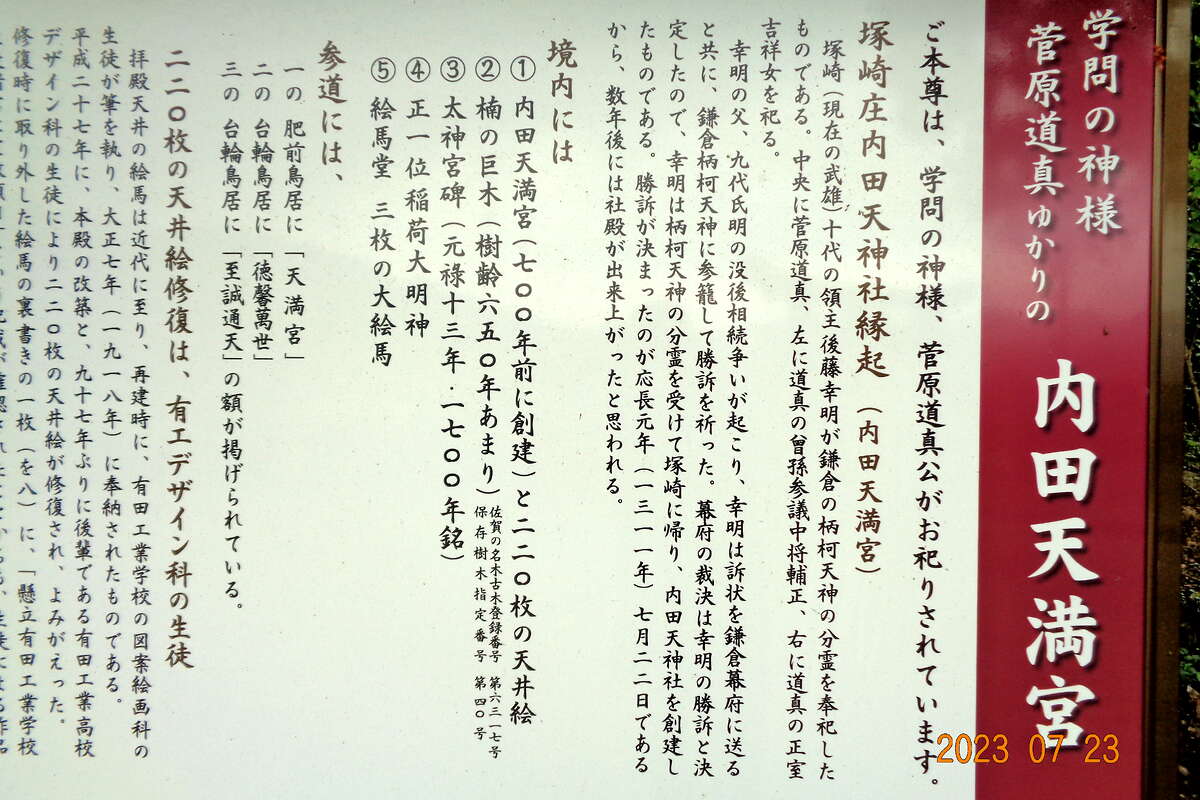 学問の神様
菅原道真ゆかりの 内田天満宮
ご本尊は、学問の神様、菅原道真公がお祀りされています。
塚崎庄内田天神社縁起 (内田天満宮)
塚崎(現在の武雄)十代の領主後藤幸明が鎌倉の柄柯天神の分霊を奉祀した
ものである。中央に菅原道真、左に道真の曾孫参議中将輔正、右に道真の正室
吉祥女を祀る。
幸明の父、九代氏明の没後相続争いが起こり、幸明は訴状を鎌倉幕府に送る
と共に、鎌倉柄柯天神に参籠して勝訴を祈った。幕府の裁決は幸明の勝訴と決
定したので、幸明は柄柯天神の分霊を受けて塚崎に帰り、内田天神社を創建し
たものである。勝訴が決まったのが応長元年(一三一一年)七月二二日である
から、数年後には社殿が出来上がったと思われる。
境内には
① 内田天満宮(七〇〇年前に創建)と二二〇枚の天井絵
② 楠の巨木(樹齢六五〇年あまり)佐賀の名木古木登録番号 第六三一七号
保存樹木指定番号 第四〇号
③ 太神宮碑(元禄十三年・一七〇〇年銘)
④ 正一位稲荷大明神
⑤ 絵馬堂 三枚の大絵馬
参道には、
一の 肥前鳥居に 「天満宮」
二の 台輪鳥居に 「徳馨萬世」
三の 台輪鳥居に 「至誠通天」の額が掲げられている。
二二〇枚の天井絵修復は、有工デザイン科の生徒
拝殿天井の絵馬は近代に至り、再建時に、有田工業学校の図案絵画科の
生徒が筆を執り、大正七年(一九一八年)に奉納されたものである。
平成二十七年に、本殿の改築と、九十七年ぶりに後輩である有田工業高校
デザイン科の生徒により二二〇枚の天井絵が修復され、よみがえった。
修復時に取り外した絵馬の裏書きの一枚(を八)に、「懸立有田工業学校
2023 07 23